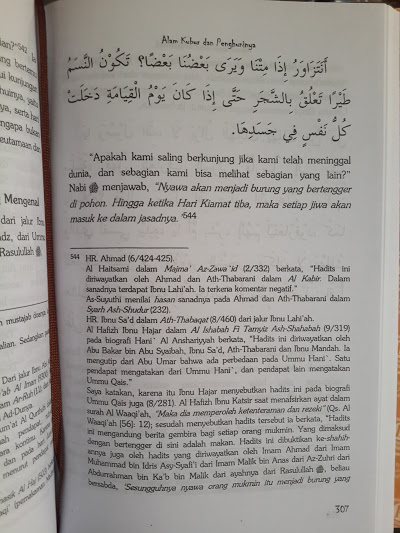 Alam Kubur dan Penghuninya
أَنَتَزَاوَرُ إِذَا مِتْنَا وَيَرَى بَعْضُنَا بَعْضًا؟ تَكُوْنُ النَّسَمُ
طَيْرًا تَعْلُقُ بِالشَّجَرِ حَتَّى إِذَا كَانَ يَوْمُ الْقِيَامَةِ دَخَلَتْ
كُلُّ نَفْسٍ فِي جَسَدِهَا.
"Apakah kami saling berkunjung jika kami telah meninggal
dunia, dan sebagian kami bisa melihat sebagian yang lain?"
Nabi ﷺ menjawab, "Nyawa akan menjadi burung yang bertengger
di pohon. Hingga ketika Hari Kiamat tiba, maka setiap jiwa akan
masuk ke dalam jasadnya."544
544 HR. Ahmad (6/424-425).
Al Haitsami dalam Majma' Az-Zawa'id (2/332) berkata, "Hadits ini
diriwayatkan oleh Ahmad dan Ath-Thabarani dalam Al Kabir. Dalam
sanadnya terdapat Ibnu Lahi'ah. Ia terkena komentar negatif."
As-Suyuthi menilai hasan sanadnya pada Ahmad dan Ath-Thabarani dalam
Syarh Ash-Shudur (232).
HR. Ibnu Sa'd dalam Ath-Thabaqat (8/460) dari jalur Ibnu Lahi'ah.
Al Hafizh Ibnu Hajar dalam Al Ishabah Fi Tamyiz Ash-Shahabah (9/319)
pada biografi Hani` Al Anshariyyah berkata, "Hadits ini diriwayatkan oleh
Abu Bakar bin Abu Syaibah, Ibnu Sa'd, Ath-Thabarani dan Ibnu Mandah. Ia
mengutip dari Abu Umar bahwa ada perbedaan pada Ummu Hani`. Satu
pendapat mengatakan dari Ummu Hani`, dan pendapat lain mengatakan
Ummu Qais."
Saya katakan, karena itu Ibnu Hajar menyebutkan hadits ini pada biografi
Ummu Qais juga (8/281). Al Hafizh Ibnu Katsir saat menafsirkan ayat dalam
surah Al Waaqi'ah, "Maka dia memperoleh ketenteraman dan rezeki" (Qs. Al
Waaqi'ah [56]: 12); sesudah menyebutkan hadits tersebut ia berkata, "Hadits
ini mengandung berita gembira bagi setiap orang mukmin. Yang dimaksud
dengan bertengger di sini adalah makan. Hadits ini dibuktikan ke-shahih-
annya juga oleh hadits yang diriwayatkan oleh Imam Ahmad dari Imam
Muhammad bin Idris Asy-Syafi'i dari Imam Malik bin Anas dari Az-Zuhri dari
Abdurrahman bin Ka'b bin Malik dari ayahnya dari Rasulullah ﷺ, beliau
bersabda, 'Sesungguhnya nyawa orang mukmin itu menjadi burung yang
307